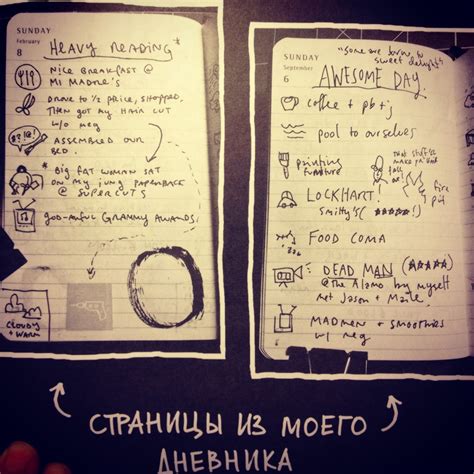 SUNDAY
February
8
HEAVY READING *
NICE BREAKFAST @
MI MADRE'S
DROVE TO ½ PRICE, SHOPPED,
THEN GOT MY HAIR CUT
W/O MEG
ASSEMBLED OUR
BED.
* BIG FAT WOMAN SAT
ON MY JUNG PAPERBACK
@ SUPERCUTS
GOD-AWFUL GRAMMY AWARDS.
CLOUDY
+ WARM
SUNDAY
September
6
"some are born to
sweet delight"
AWESOME DAY.
coffee + pb + j
pool to ourselves
painting
furniture
that stuff'll
make
fire
pit
LOCKHART!
Smitty's (★★★★★)
FOOD COMA
DEAD MAN (★★★★★)
@ the Alamo by myself
met Jason +
MADMEN + SMOOTHIES
w/ meg
СТРАНИЦЫ ИЗ МОЕГО
ДНЕВНИКА